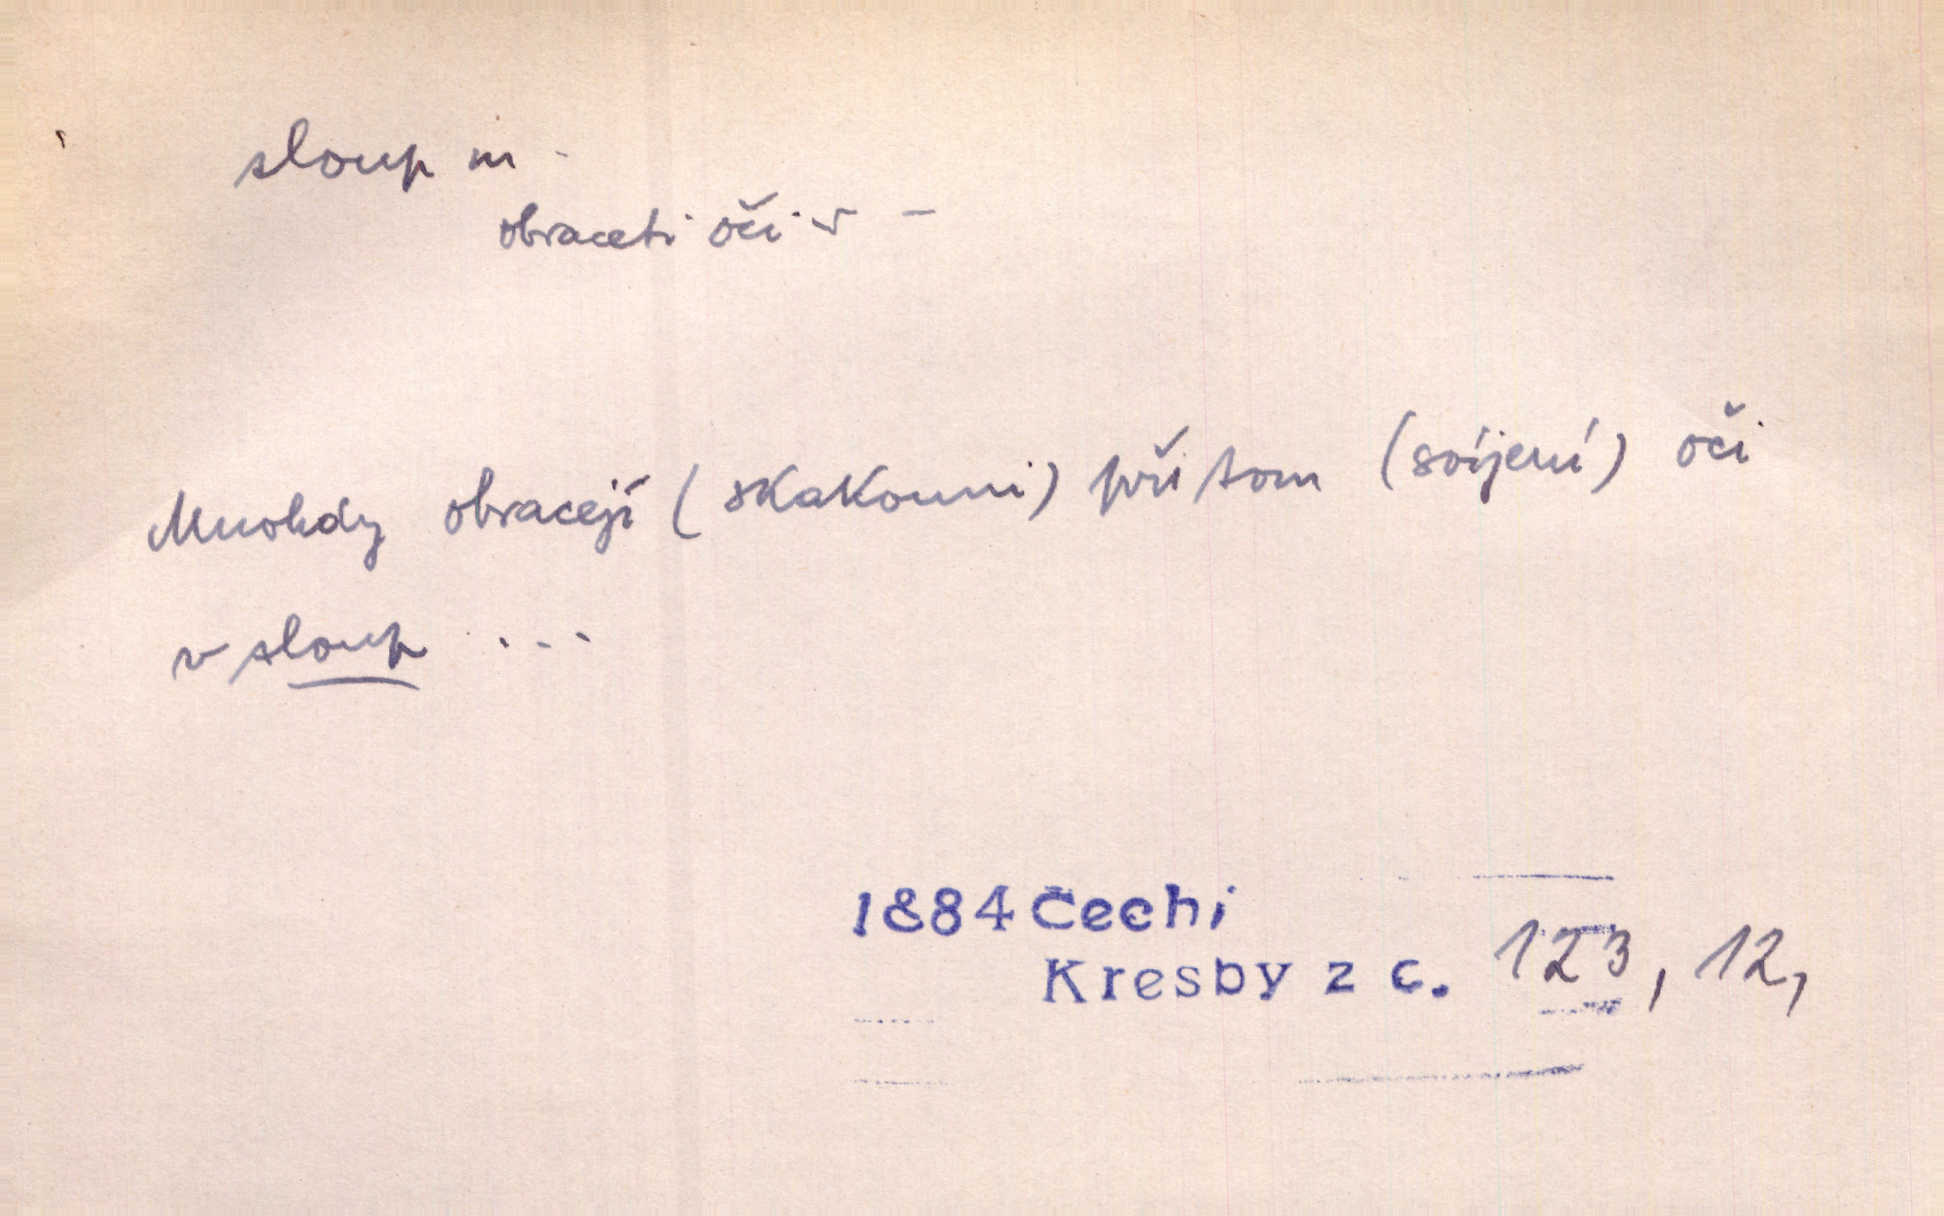 sloup m -
obraceti oči v -
Mnohdy obracejí (skakouni) při tom (svíjení) oči
v sloup ...
1884 Čechi
Kresby z c. 123, 12,